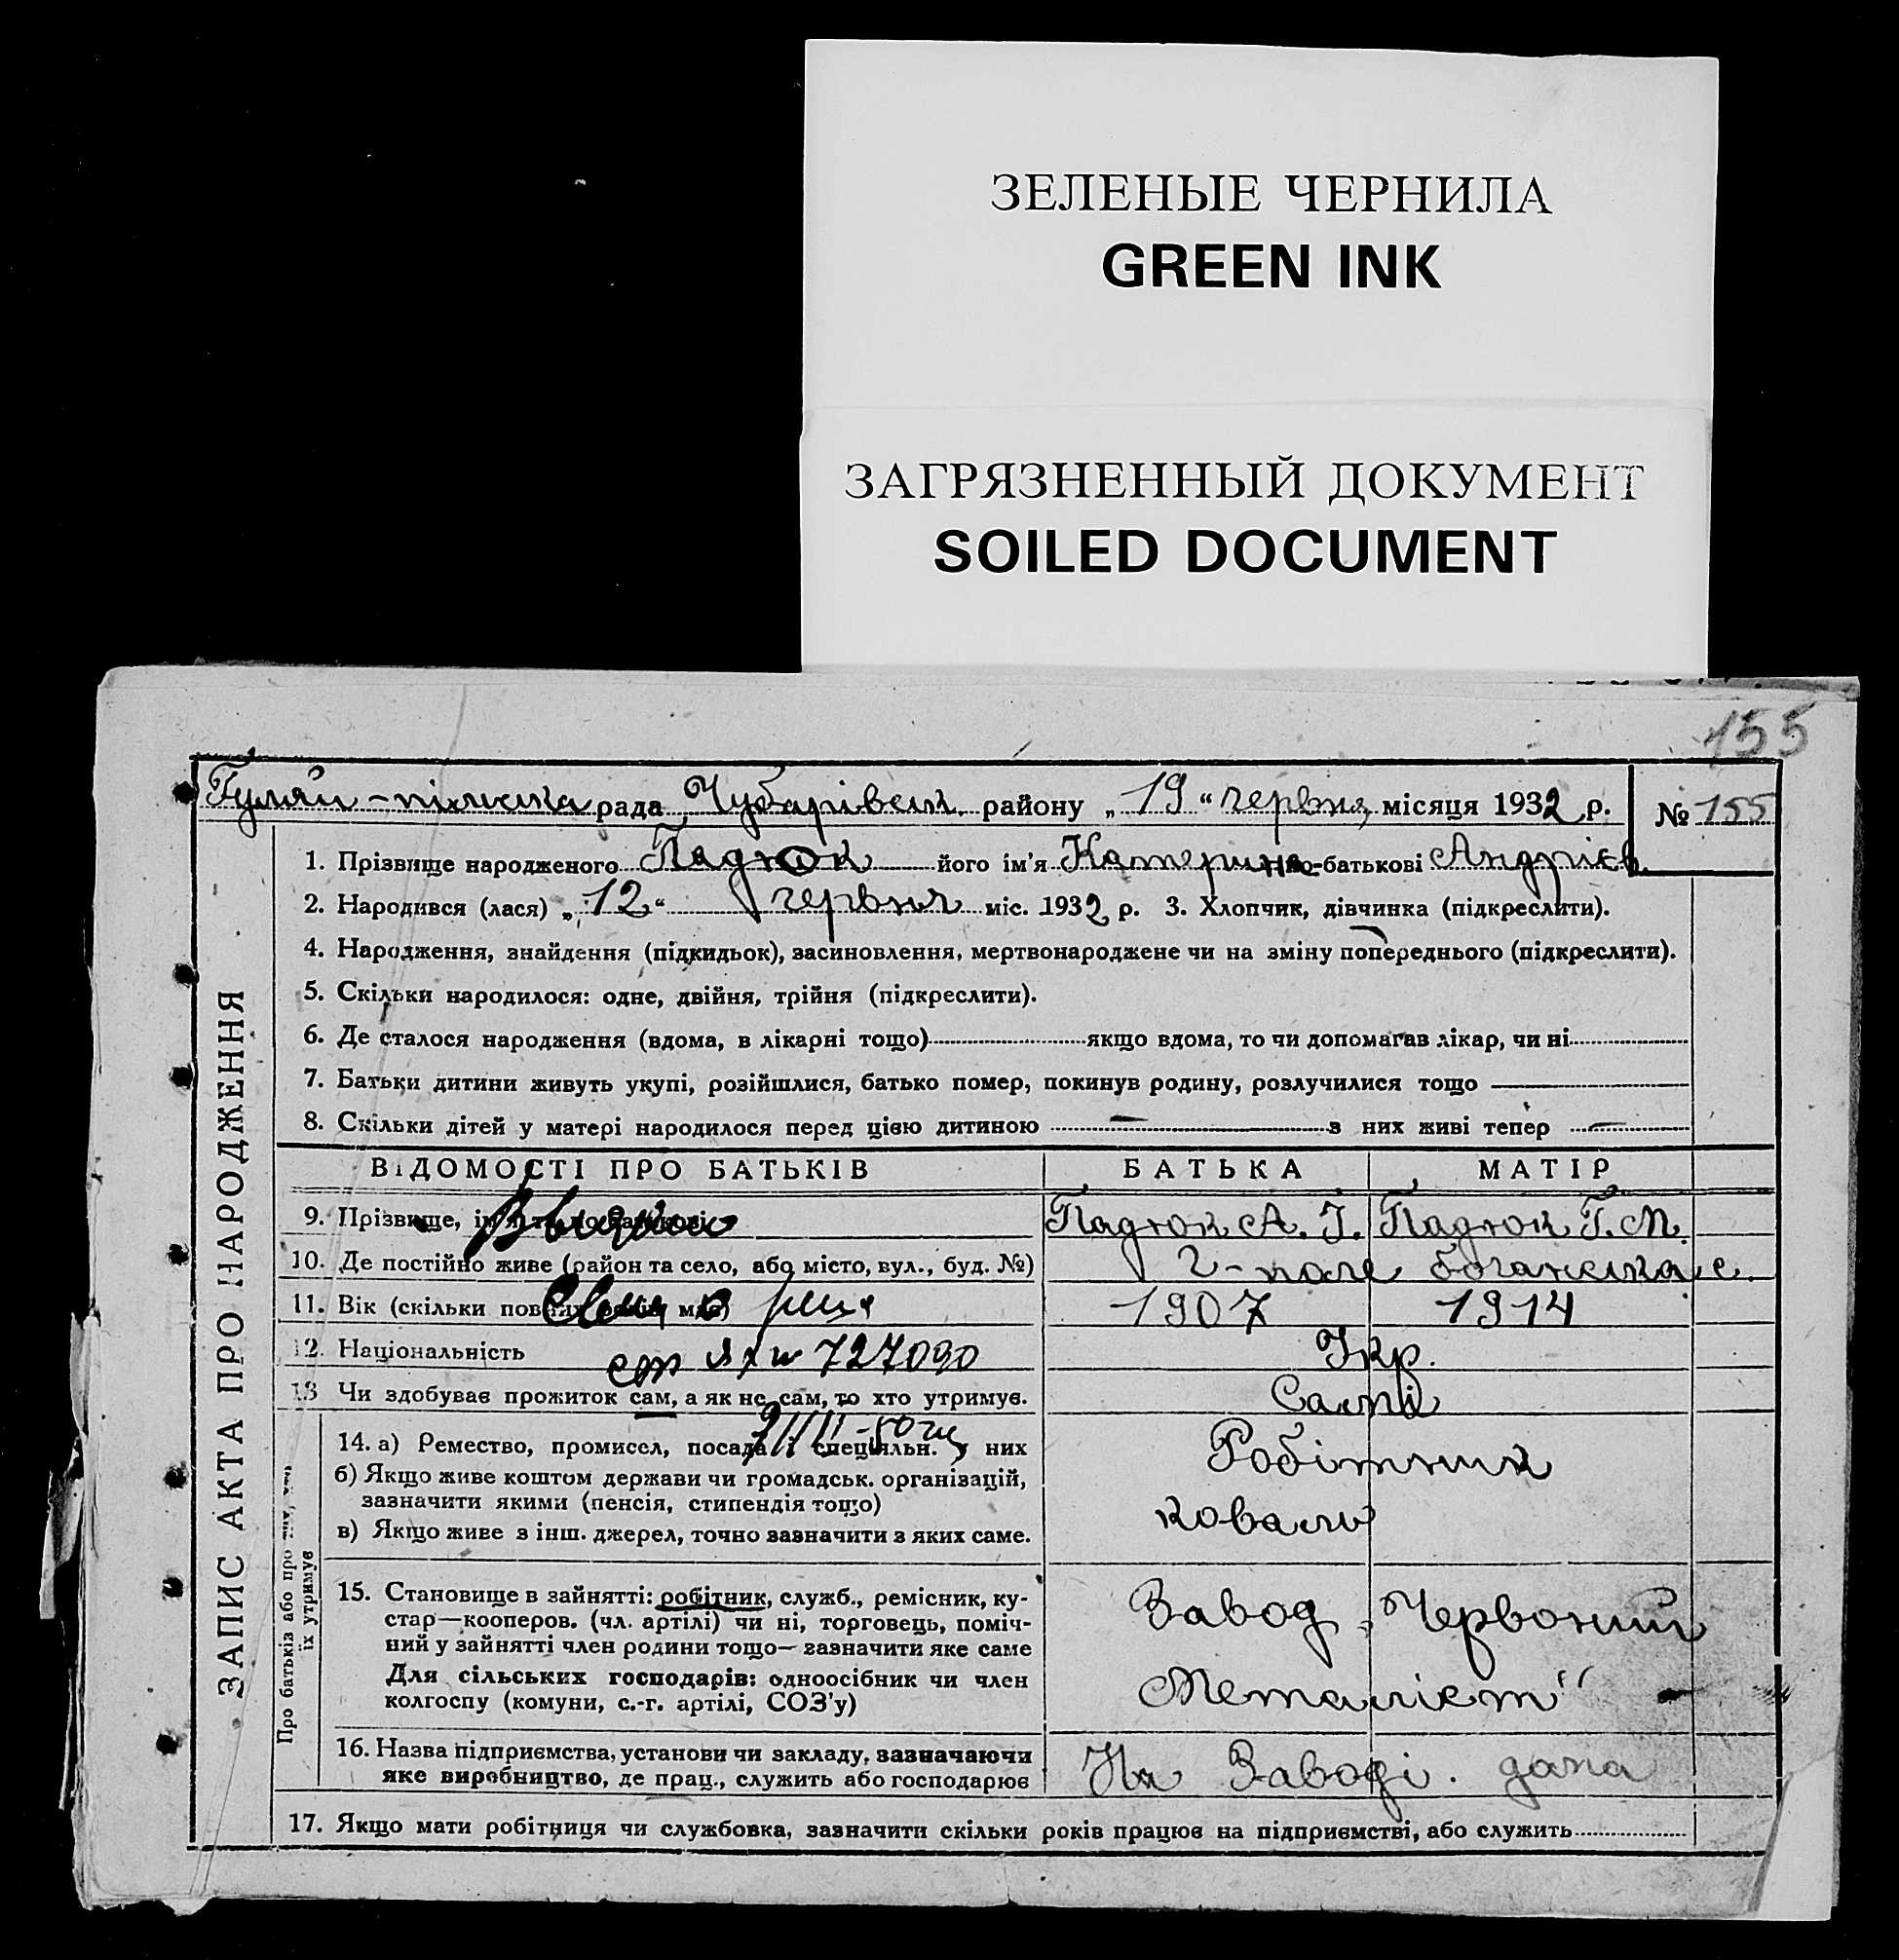 ЗЕЛЕНЫЕ ЧЕРНИЛА
GREEN INK
ЗАГРЯЗНЕННЫЙ ДОКУМЕНТ
SOILED DOCUMENT
155
Гуляй-пільська рада Чубарівськ. району „19“ червня місяця 1932 р. № 155
ЗАПИС АКТА ПРО НАРОДЖЕННЯ
1. Прізвище народженого Падток його ім'я Катерина по-батькові Андріев.
2. Народився (лася) „12“ червня міс. 1932 р. 3. Хлопчик, дівчинка (підкреслити).
4. Народження, знайдення (підкидьок), засиновлення, мертвонароджене чи на зміну попереднього (підкреслити).
5. Скільки народилося: одне, двійня, трійня (підкреслити).
6. Де сталося народження (вдома, в лікарні тощо) якщо вдома, то чи допомагав лікар, чи ні
7. Батьки дитини живуть укупі, розійшлися, батько помер, покинув родину, розлучилися тощо —
8. Скільки дітей у матері народилося перед цією дитиною — з них живі тепер —
ВІДОМОСТІ ПРО БАТЬКІВ БАТЬКА МАТІР
9. Прізвище, ім'я та по-батькові Падток А. І. Падток Г. М.
10. Де постійно живе (район та село, або місто, вул., буд. №) Г-поле
11. Вік (скільки повних років має) 1907 1914
12. Національність 727090 Укр.
13 Чи здобуває прожиток сам, а як не сам, то хто утримує. Самі
Про батьків або про їх утримує
14. а) Ремество, промисел, посада і спеціяльн. у них Робітник
б) Якщо живе коштом держави чи громадськ. організацій,
зазначити якими (пенсія, стипендія тощо) коваль
в) Якщо живе з інш. джерел, точно зазначити з яких саме.
15. Становище в зайнятті: робітник, служб., ремісник, ку-
стар—кооперов. (чл. артілі) чи ні, торговець, поміч- Завод „Червоний
ний у зайнятті член родини тощо— зазначити яке саме
Для сільських господарів: одноосібник чи член Металіст“
колгоспу (комуни, с.-г. артілі, СОЗ'у)
16. Назва підприємства, установи чи закладу, зазначаючи На Заводі. дома
яке виробництво, де прац., служить або господарює
17. Якщо мати робітниця чи службовка, зазначити скільки років працює на підприємстві, або служить